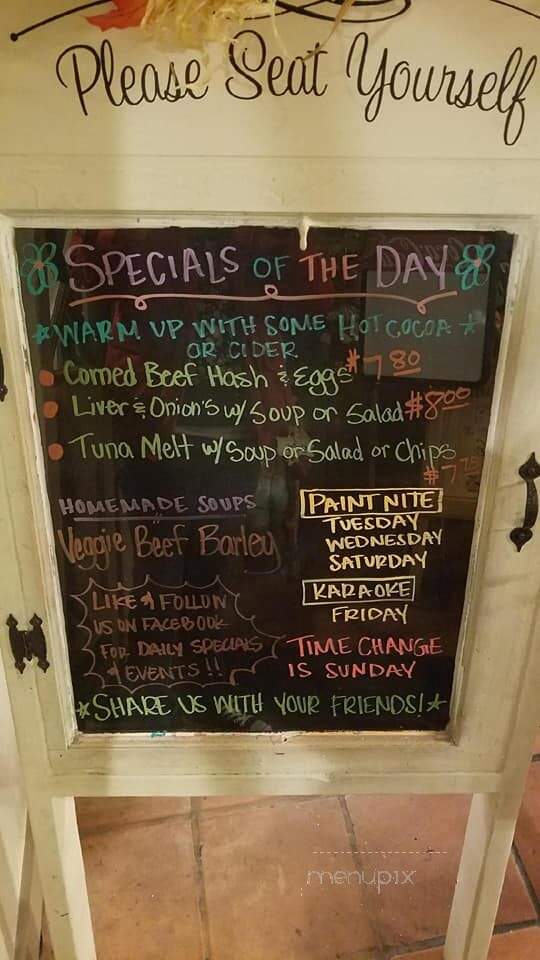 Please Seat Yourself
SPECIALS OF THE DAY
WARM UP WITH SOME HOT COCOA
OR CIDER
Corned Beef Hash & Eggs $7.80
Liver & Onion's w/ Soup or Salad $8.00
Tuna Melt w/ Soup or Salad or Chips
$7.75
HOMEMADE SOUPS
Veggie Beef Barley
LIKE & FOLLOW
US ON FACEBOOK
FOR DAILY SPECIALS
& EVENTS!!
PAINT NITE
TUESDAY
WEDNESDAY
SATURDAY
KARAOKE
FRIDAY
TIME CHANGE
IS SUNDAY
SHARE US WITH YOUR FRIENDS!
menupix